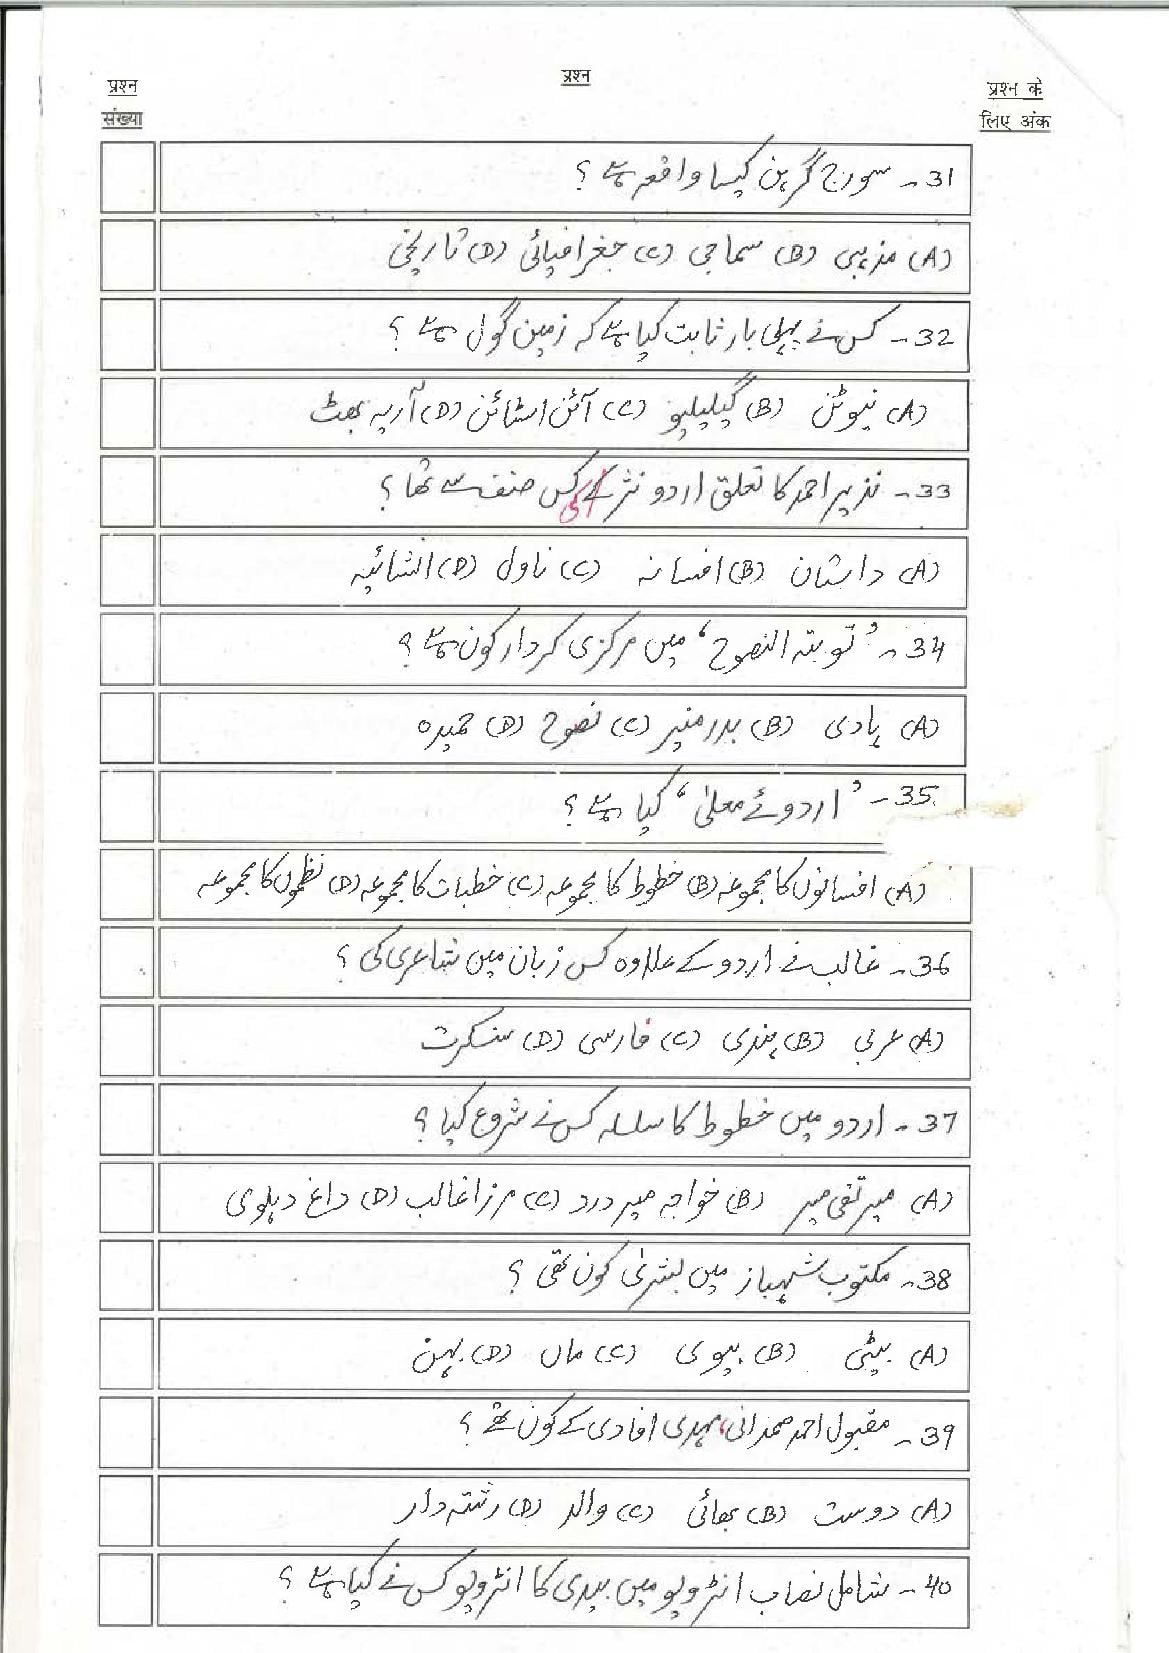 प्रश्न संख्या
प्रश्न
प्रश्न के लिए अंक
31- سورج گرہن کیسا واقعہ ہے ؟
(A) مذہبی (B) سماجی (C) جغرافیائی (D) تاریخی
32- کس نے پہلی بار ثابت کیا ہے کہ زمین گول ہے ؟
(A) نیوٹن (B) گیلیلیو (C) آئن اسٹائن (D) آریہ بھٹ
33- نذیر احمد کا تعلق اردو نثر کی کس صنف سے تھا ؟
(A) داستان (B) افسانہ (C) ناول (D) انشائیہ
34- ’توبتہ النصوح‘ میں مرکزی کردار کون ہے ؟
(A) ہادی (B) بدر منیر (C) نصوح (D) حمیدہ
35- ’اردوئے معلیٰ‘ کیا ہے ؟
(A) افسانوں کا مجموعہ (B) خطوط کا مجموعہ (C) خطبات کا مجموعہ (D) نظموں کا مجموعہ
36- غالب نے اردو کے علاوہ کس زبان میں شاعری کی ؟
(A) عربی (B) ہندی (C) فارسی (D) سنسکرت
37- اردو میں خطوط کا سلسلہ کس نے شروع کیا ؟
(A) میر تقی میر (B) خواجہ میر درد (C) مرزا غالب (D) داغ دہلوی
38- مکتوب شہباز میں بشریٰ کون تھی ؟
(A) بیٹی (B) بیوی (C) ماں (D) بہن
39- مقبول احمد صمدانی، مہدی افادی کے کون تھے ؟
(A) دوست (B) بھائی (C) والد (D) رشتہ دار
40- شامل نصاب انٹرویو میں بیدی کا انٹرویو کس نے کیا ہے ؟